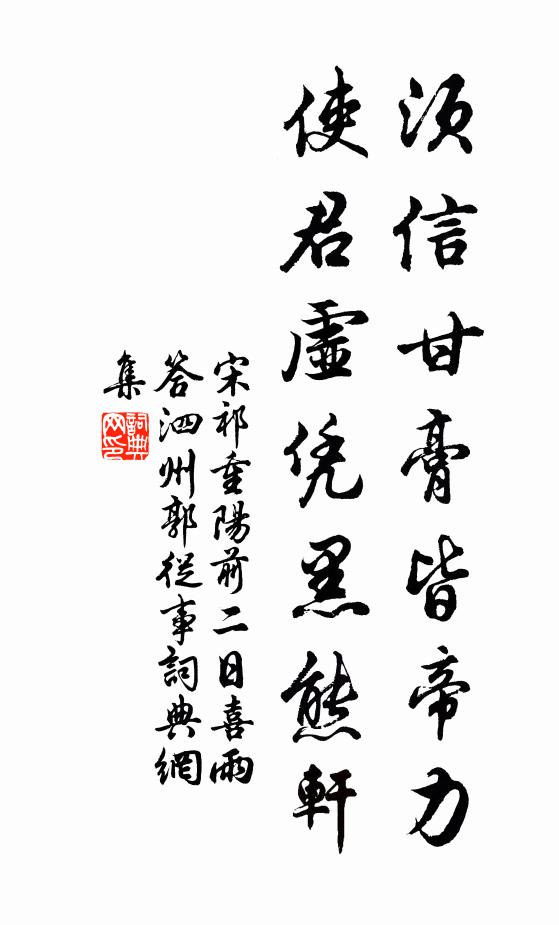 须信甘膏皆帝力
使君虚凭黑熊軒
宋祁重陽前二日喜雨
答泗州郭從事詞典網
集
詞典
网印